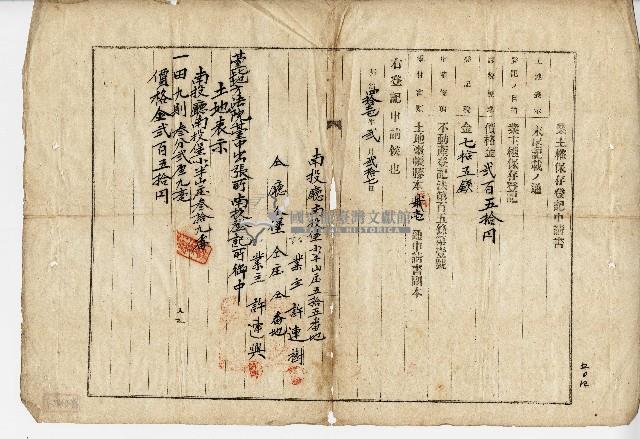 業主權保存登記申請書
土地表示 末尾記載ノ通
登記ノ目的 業主權保存登記
價格金貳百五拾円
登記稅 金七拾五錢
申請條項 不動產登記法第百五條第壹號
土地臺帳謄本 壹通申請書副本
右登記申請候也
明治四拾壱年貳月貳拾七日
南投廳南投堡小半山庄五拾五番地
業主 許連樹
仝廳仝堡仝庄仝番地
業主 許連興
臺中地方法院臺中出張所南投登記所御中
土地表示
南投廳南投堡小半山庄叁拾九番
一田九則叁分貳厘九毫
價格金貳百五拾円
國史館臺灣文獻館
TAIWAN HISTORICA